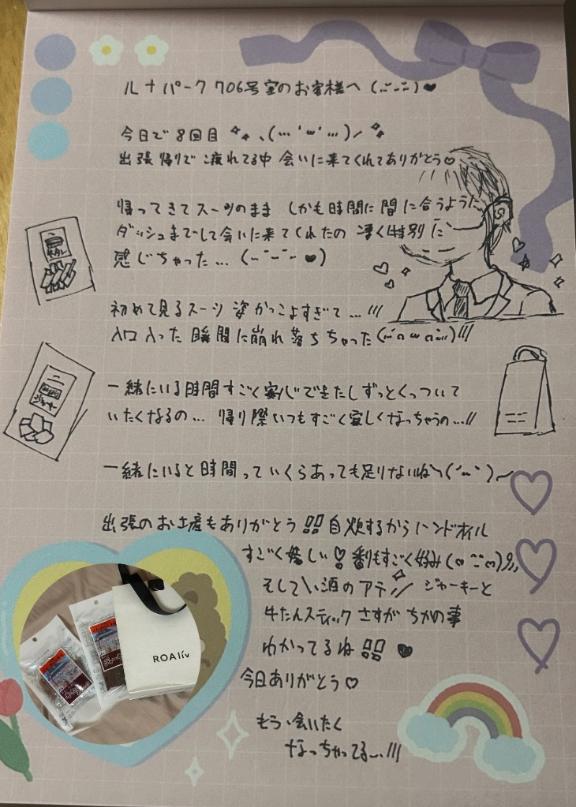 ルナパーク 706号室のお客様へ (¨ ̆ ̆)♥
今日で8回目 ✧*。(˶ˊᵕˋ˶)ノ ✧*
出張帰りで疲れてる中 会いに来てくれてありがとう♡
帰ってきてスーツのまま しかも時間に間に合うように
ダッシュまでして会いに来てくれたの 凄く特別に
感じちゃった… (˶ ̆ ̆˶ ♥)
初めて見るスーツ姿かっこよすぎて…///
入口入った瞬間に崩れ落ちちゃった(˶ ᷇ω ᷆˶)///
一緒にいる時間すごく安心できたしずっとくっついて
いたくなるの… 帰り際いつもすごく寂しくなっちゃうの…!!
一緒にいると時間っていくらあっても足りないね
出張のお土産もありがとう!!自炊するからハンドオイル
すごく嬉しい♡香りもすごく好み
そして\酒のアテ/ ジャーキーと
牛たんスティック さすが ちかの事
わかってるね!! ♥
今日ありがとう♡
もう会いたく
なっちゃってる…///
ROALív